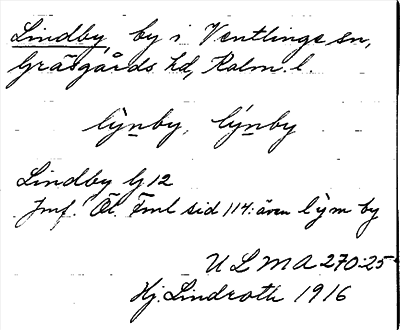 Lindby, by i Ventlinge sn,
Gräsgårds hd, Kalm. l.
lỳnby, lýnby
Lindby G 12
Jmf. Öl. Fml sid 114: även lỳm by
ULMA 270:25
Hj. Lindroth 1916